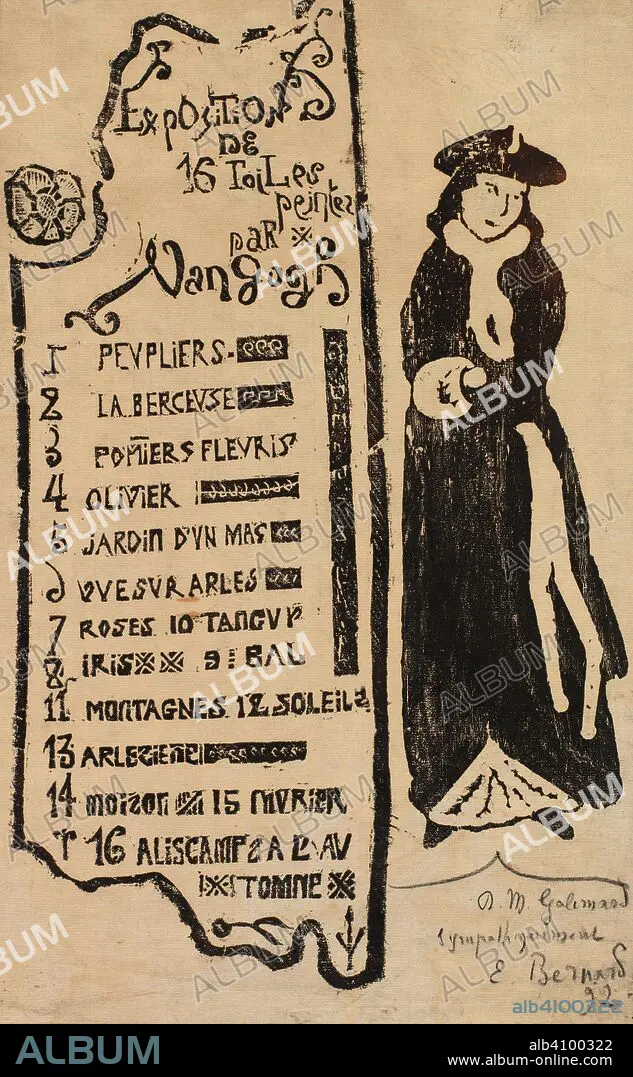 ExpOsiTION
DE
16 ToiLes
peintes
paR
Van gogh
1 PEVPLIERS
2 LA BERCEVSE
3 POM̄IERS FLEVRIS
4 OLIVIER
5 JARDIN D'VN MAS
6 VVE SVR ARLES
7 ROSES 10 TANGVY
8 IRIS 9 BAL
11 MONTAGNES 12 SOLEILS
13 ARLEZIENE
14 MOISON 15 MVRIER
16 ALISCAMPS A L'AV
TOMNE
A. M. Galimard
Sympathiquement
E Bernard
92
alb4100322
ALBUM
alb4100322
www.album-online.com